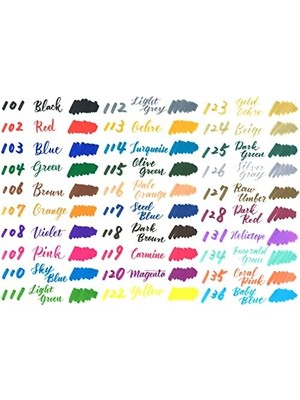 101 Black
102 Red
103 Blue
104 Green
106 Brown
107 Orange
108 Violet
109 Pink
110 Sky
Blue
111 Light
Green
112 Light
Grey
113 Ochre
114 Turquoise
115 Olive
Green
116 Pale
Orange
117 Steel
Blue
118 Dark
Brown
119 Carmine
120 Magenta
122 Yellow
123 Gold
Ochre
124 Beige
125 Dark
Green
126 Silver
Gray
127 Raw
Umber
128 Dark
Red
131 Heliotope
134 Emerald
Green
135 Coral
Pink
136 Baby
Blue